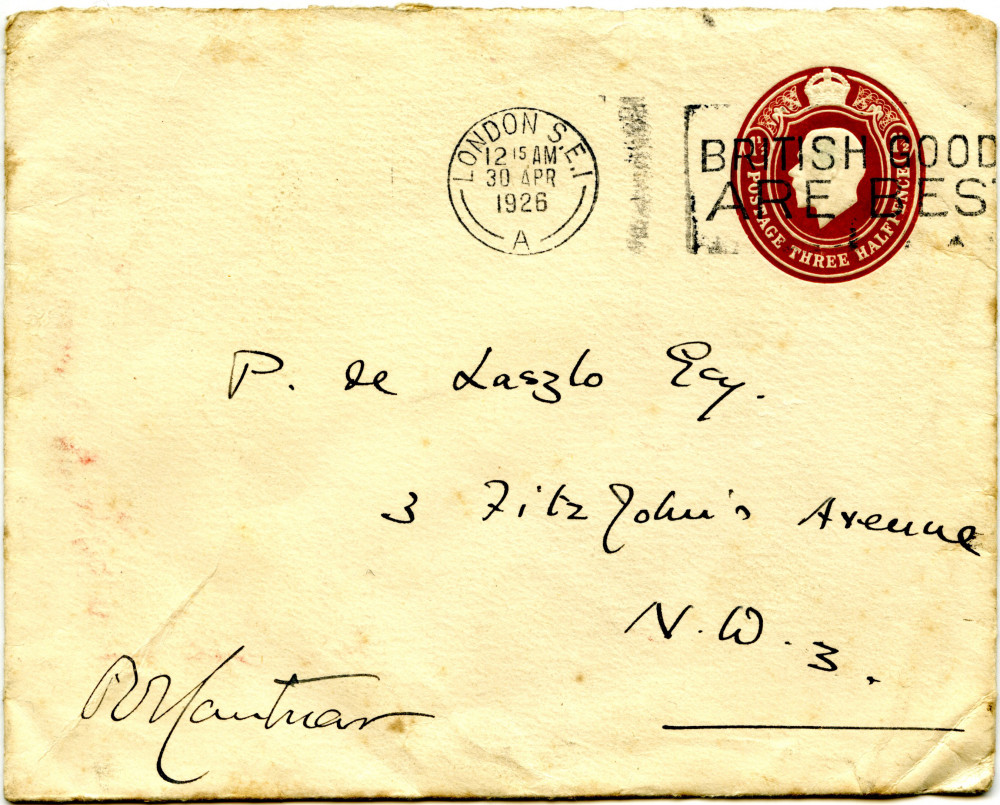 LONDON S.E.1
12 15 AM
30 APR
1926
A
BRITISH GOOD
ARE BEST
POSTAGE THREE HALFPENCE
P. de Laszlo Esq.
3 Fitz John's Avenue
N. W. 3.